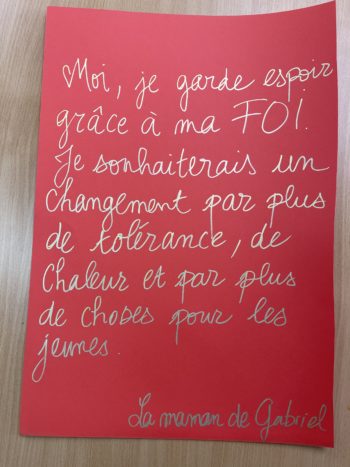 Moi, je garde espoir
grâce à ma FOI.
Je souhaiterais un
changement par plus
de tolérance, de
chaleur et par plus
de choses pour les
jeunes.
La maman de Gabriel